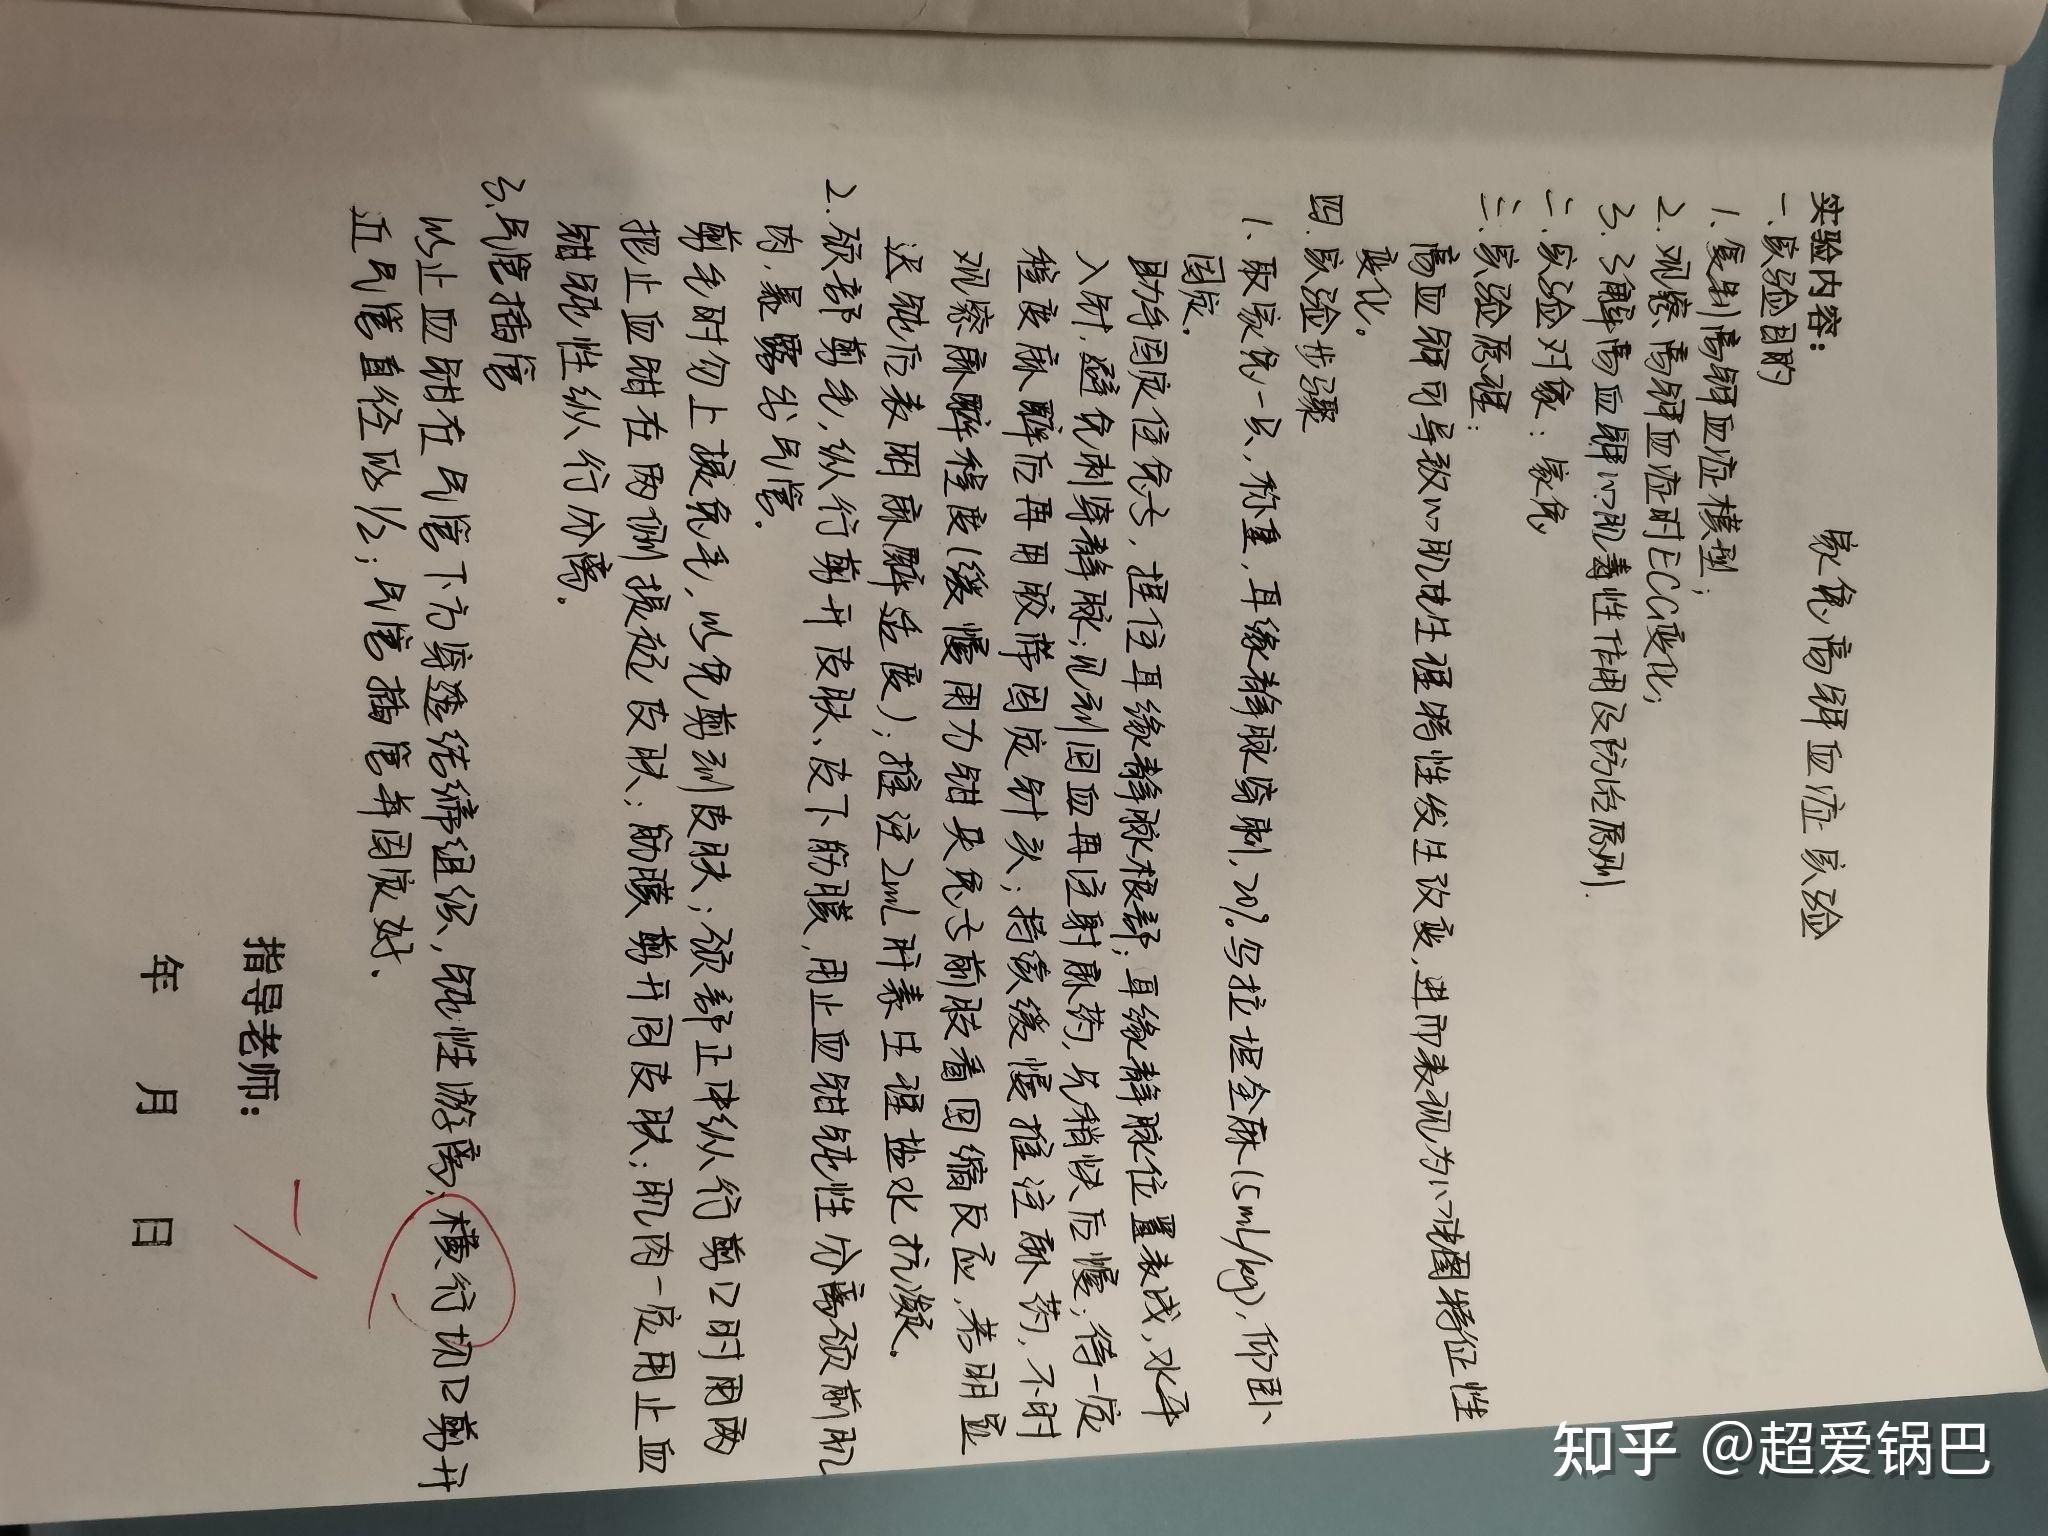 家兔高钾血症实验
实验内容：
一.实验目的
1.复制高钾血症模型；
2.观察高钾血症时ECG变化；
3.了解高血钾心肌毒性作用及防治原则.
二.实验对象：家兔
三.实验原理：
高血钾可导致心肌电生理特性发生改变,进而表现为心电图特征性
变化。
四.实验步骤
1.取家兔一只,称重,耳缘静脉穿刺,20%乌拉坦全麻(5mL/kg),仰卧
固定。
助手固定住兔子,捏住耳缘静脉根部；耳缘静脉位置表浅,水平
入针,避免刺穿静脉；见到回血再注射麻药,先稍快后慢；待一定
程度麻醉后再用胶带固定针头；持续缓慢推注麻药,不时
观察麻醉程度(缓慢用力钳夹兔子前肢看回缩反应,若明显
迟钝后表明麻醉适度)；推注2mL肝素生理盐水抗凝。
2.颈部剪毛,纵行剪开皮肤、皮下筋膜,用止血钳钝性分离颈前肌
肉,暴露出气管。
剪毛时勿上提兔毛,以免剪到皮肤；颈部正中纵行剪口时用两
把止血钳在两侧提起皮肤；筋膜剪开同皮肤；肌肉一定用止血
钳钝性纵行分离。
3.气管插管
以止血钳在气管下方穿透结缔组织,钝性游离,横行切口剪开
近气管直径的1/2；气管插管并固定好.
指导老师：
年 月 日
知乎 @超爱锅巴